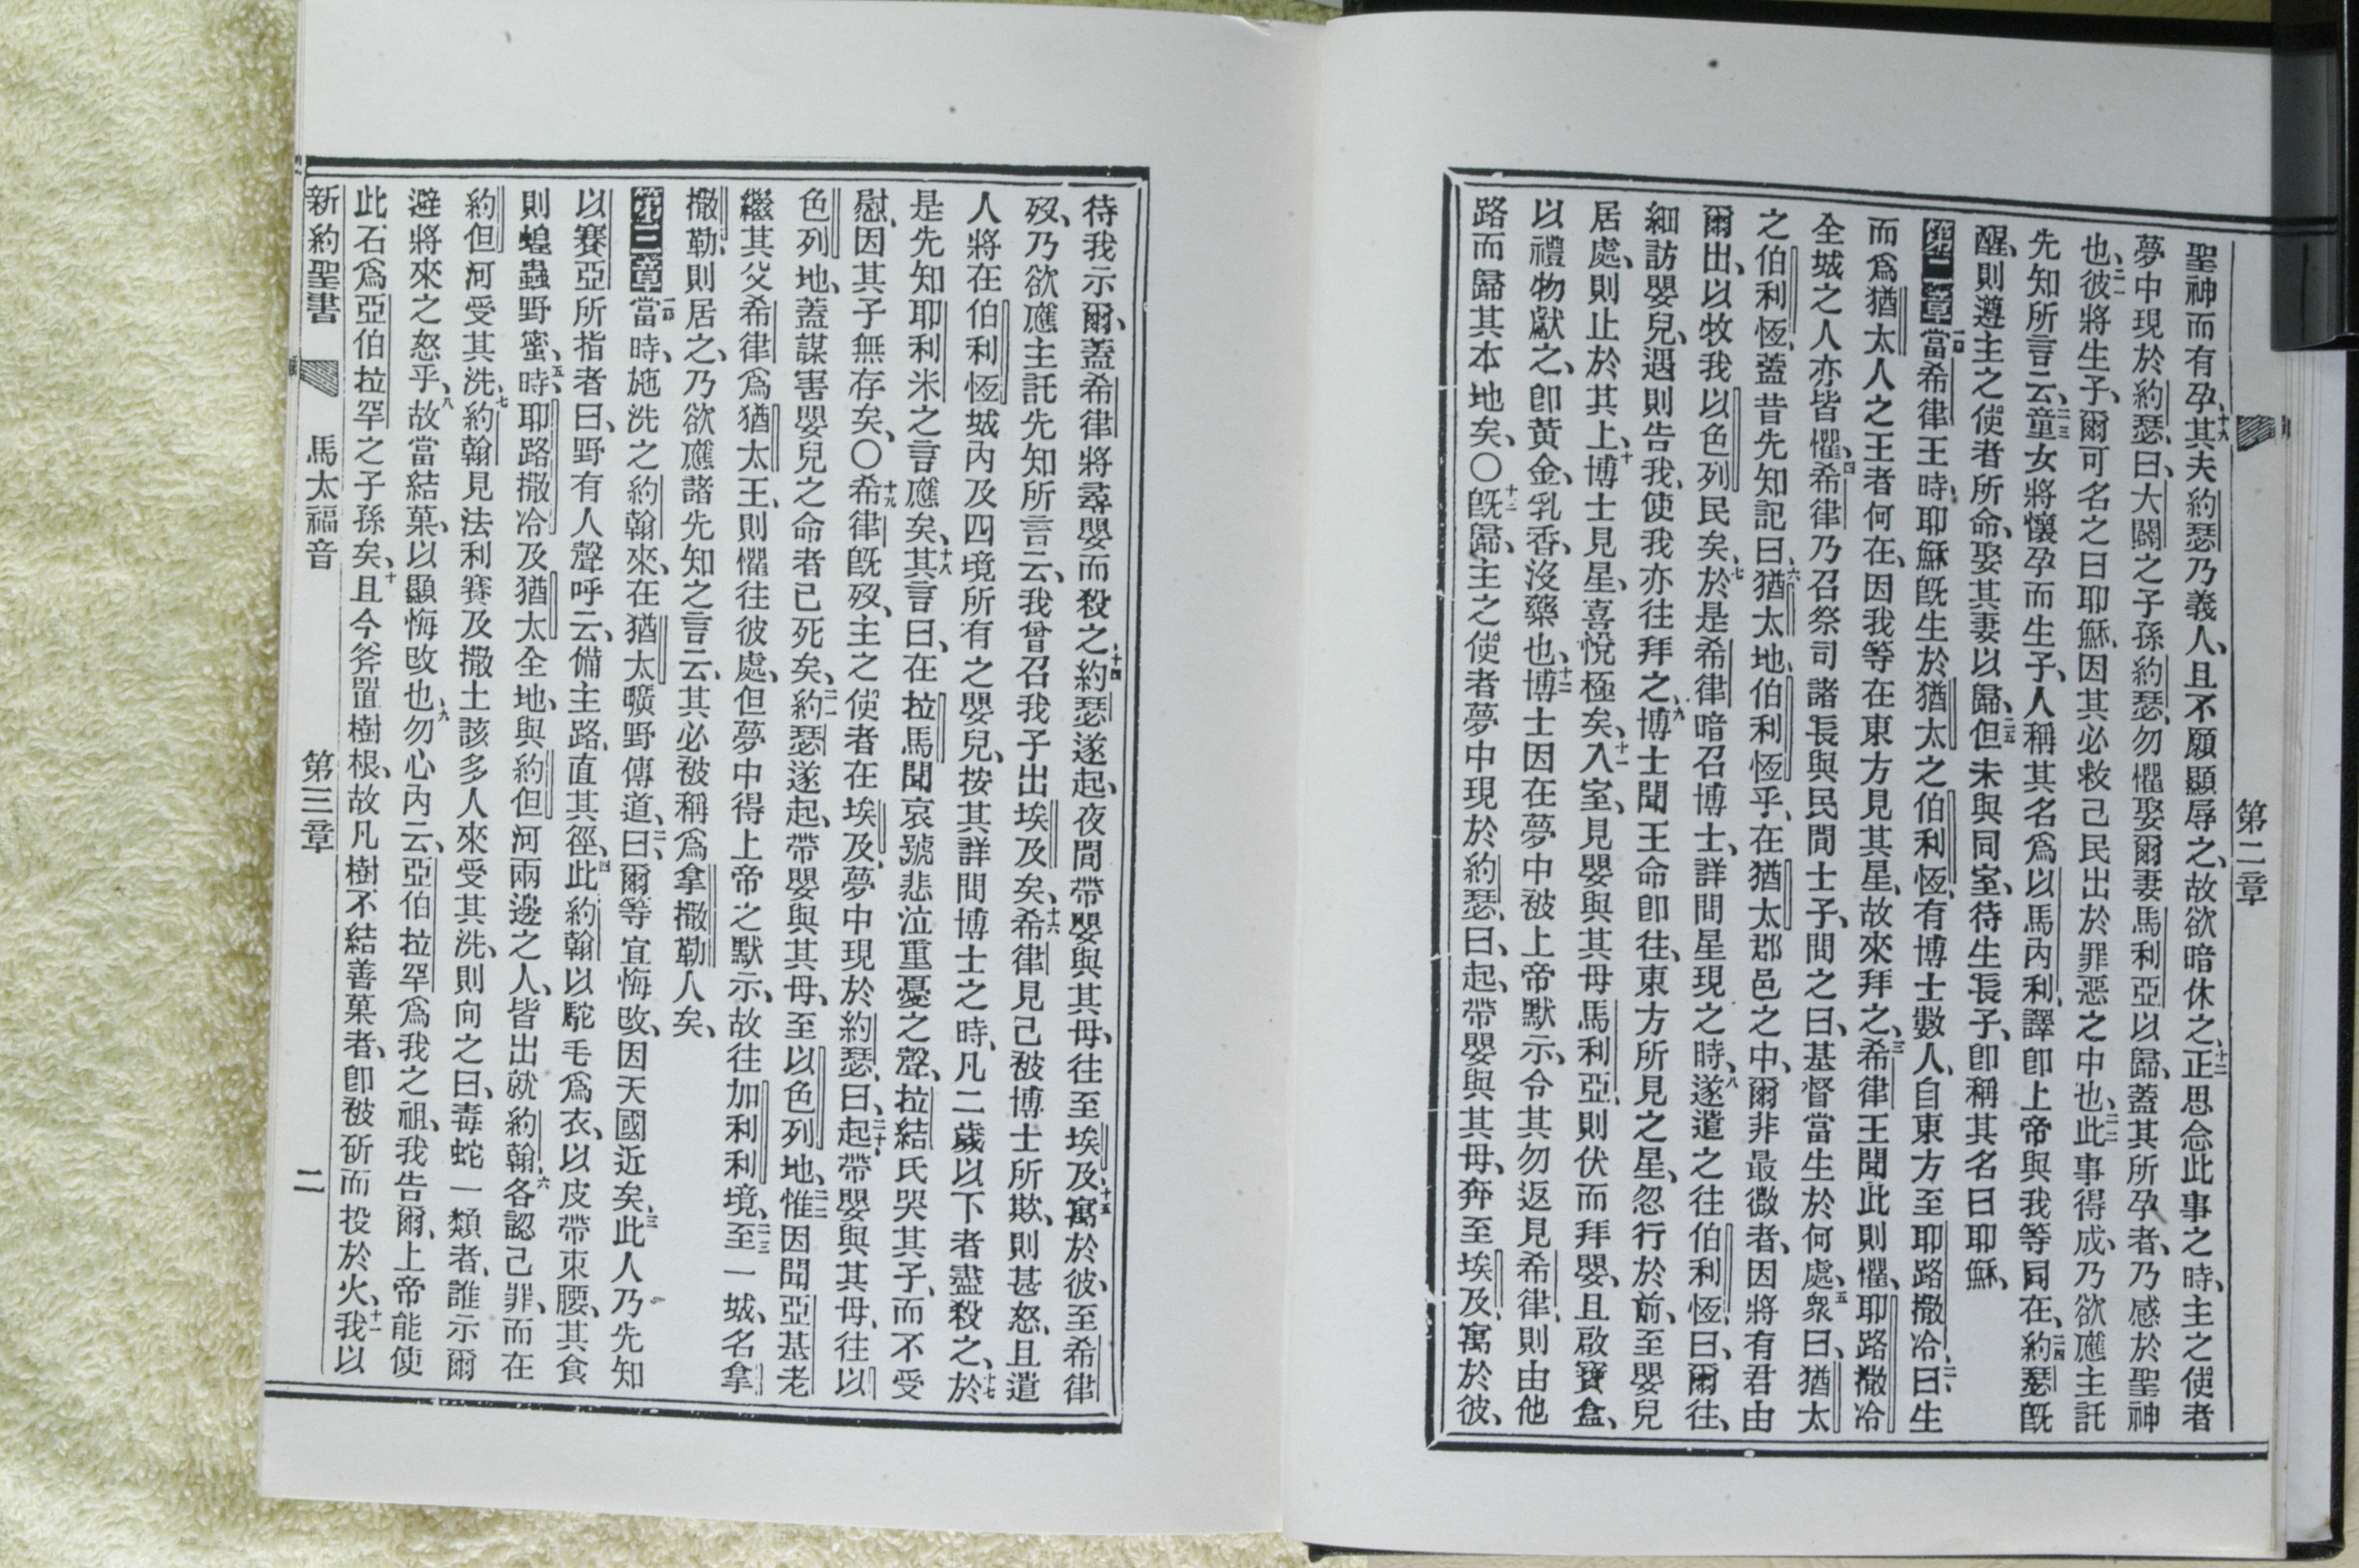 第二章
聖神而有孕、十九其夫約瑟乃義人、且不願顯辱之、故欲暗休之、二十正思念此事之時、主之使者
夢中現於約瑟、曰、大闢之子孫約瑟、勿懼娶爾妻馬利亞以歸、蓋其所孕者、乃感於聖神
也、二一彼將生子、爾可名之曰耶穌、因其必救己民出於罪惡之中也、二二此事得成、乃欲應主託
先知所言云、二三童女將懷孕而生子、人稱其名爲以馬內利、譯卽上帝與我等同在、二四約瑟旣
醒、則遵主之使者所命、娶其妻以歸、二五但未與同室、待生長子、卽稱其名曰耶穌、
第二章 一節當希律王時、耶穌旣生於猶太之伯利恆、有博士數人、自東方至耶路撒冷、二曰、生
而爲猶太人之王者何在、因我等在東方見其星、故來拜之、三希律王聞此則懼、耶路撒冷
全城之人亦皆懼、四希律乃召祭司諸長與民間士子、問之曰、基督當生於何處、五衆曰、猶太
之伯利恆、蓋昔先知記曰、六猶太地、伯利恆乎、在猶太郡邑之中、爾非最微者、因將有君由
爾出、以牧我以色列民矣、七於是希律暗召博士、詳問星現之時、八遂遣之往伯利恆、曰、爾往、
細訪嬰兒、遇則告我、使我亦往拜之、九博士聞王命卽往、東方所見之星、忽行於前、至嬰兒
居處、則止於其上、十博士見星、喜悅極矣、十一入室、見嬰與其母馬利亞、則伏而拜嬰、且啟寶盒、
以禮物獻之、卽黃金、乳香、沒藥也、十二博士因在夢中被上帝默示、令其勿返見希律、則由他
路而歸其本地矣、〇十三旣歸、主之使者夢中現於約瑟、曰、起、帶嬰與其母、奔至埃及、寓於彼、
待我示爾、蓋希律將尋嬰而殺之、十四約瑟遂起、夜間帶嬰與其母、往至埃及、十五寓於彼、至希律
歿、乃欲應主託先知所言云、我曾召我子出埃及矣、十六希律見己被博士所欺、則甚怒、且遣
人將在伯利恆城內及四境所有之嬰兒、按其詳問博士之時、凡二歲以下者盡殺之、十七於
是先知耶利米之言應矣、十八其言曰、在拉馬聞哀號悲泣重憂之聲、拉結氏哭其子、而不受
慰、因其子無存矣、〇十九希律旣歿、主之使者在埃及、夢中現於約瑟、曰、二十起、帶嬰與其母、往以
色列地、蓋謀害嬰兒之命者已死矣、二一約瑟遂起、帶嬰與其母、至以色列地、二二惟因聞亞基老
繼其父希律爲猶太王、則懼往彼處、但夢中得上帝之默示、故往加利利境、二三至一城、名拿
撒勒、則居之、乃欲應諸先知之言云、其必被稱爲拿撒勒人矣、
第三章 一節當時、施洗之約翰來、在猶太曠野傳道、二曰、爾等宜悔改、因天國近矣、三此人乃先知
以賽亞所指者、曰、野有人聲呼云、備主路、直其徑、四此約翰以駝毛爲衣、以皮帶束腰、其食
則蝗蟲野蜜、五時、耶路撒冷及猶太全地、與約但河兩邊之人、皆出就約翰、六各認己罪、而在
約但河受其洗、七約翰見法利賽及撒土該多人來受其洗、則向之曰、毒蛇一類者、誰示爾
避將來之怒乎、八故當結菓、以顯悔改也、九勿心內云、亞伯拉罕爲我之祖、我告爾、上帝能使
此石爲亞伯拉罕之子孫矣、十且今斧置樹根、故凡樹不結善菓者、卽被斫而投於火、十一我以
新約聖書 馬太福音 第三章 二